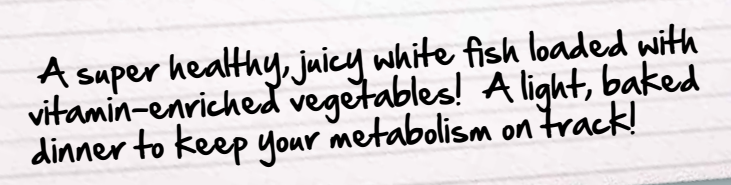 A super healthy, juicy white fish loaded with
vitamin-enriched vegetables! A light, baked
dinner to keep your metabolism on track!